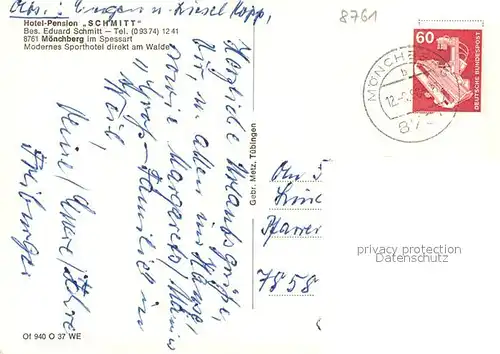 Abs.: Eugen u. Liesel Kopp,
Hotel-Pension „SCHMITT"
Bes. Eduard Schmitt – Tel. (0 93 74) 12 41
8761 Mönchberg im Spessart
Modernes Sporthotel direkt am Walde
8761
60
DEUTSCHE BUNDESPOST
MÖNCHB
b
12.-9.
87
Herzliche Urlaubsgrüße,
Dir, u. allen im Hause,
sowie Margarete/
"Groß-Familie" in
Weil
Eure
Freiburger
Gebr. Metz, Tübingen
An
Pfarrer
7858
privacy protection
Datenschutz
Of 940 O 37 WE